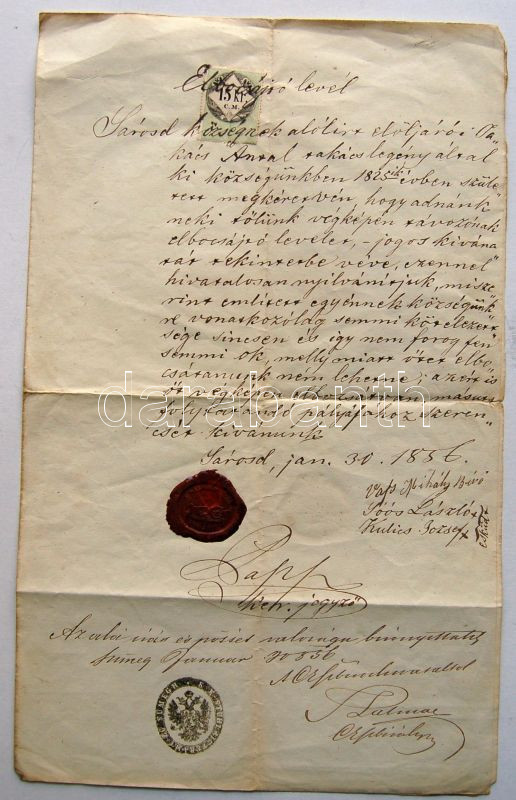 Elbocsájtó levél
15 Kr.
C.M.
Sárosd községnek alólirt elöljárói Ta-
kács Antal takácslegény által
ki községünkben 1825ik évben szüle-
tett megkéretvén, hogy adnánk
neki tőlünk végképen távozónak
elbocsájtó levelet, – jogos kivána-
tát tekintetbe véve, ezennel
hivatalosan nyilvánitjuk, misze-
rint emlitett egyénnek községünk-
re vonatkozólag semmi kötelezett-
sége sincsen és igy nem forog fen
semmi ok, melly miatt őtet elbo-
csátanunk nem lehetne; azért is
őt végképen elbocsátván másutt
folytatandó pályájához szeren-
csét kivánunk
Sárosd, jan. 30. 1856.
Vass Mihály Biró
Soós László
Kulics Jozsef
esküdt
Papp
jegyző
Az alá irás és pöcsét valósága bizonyittatik
Sümeg Januar 30 856
darabanth